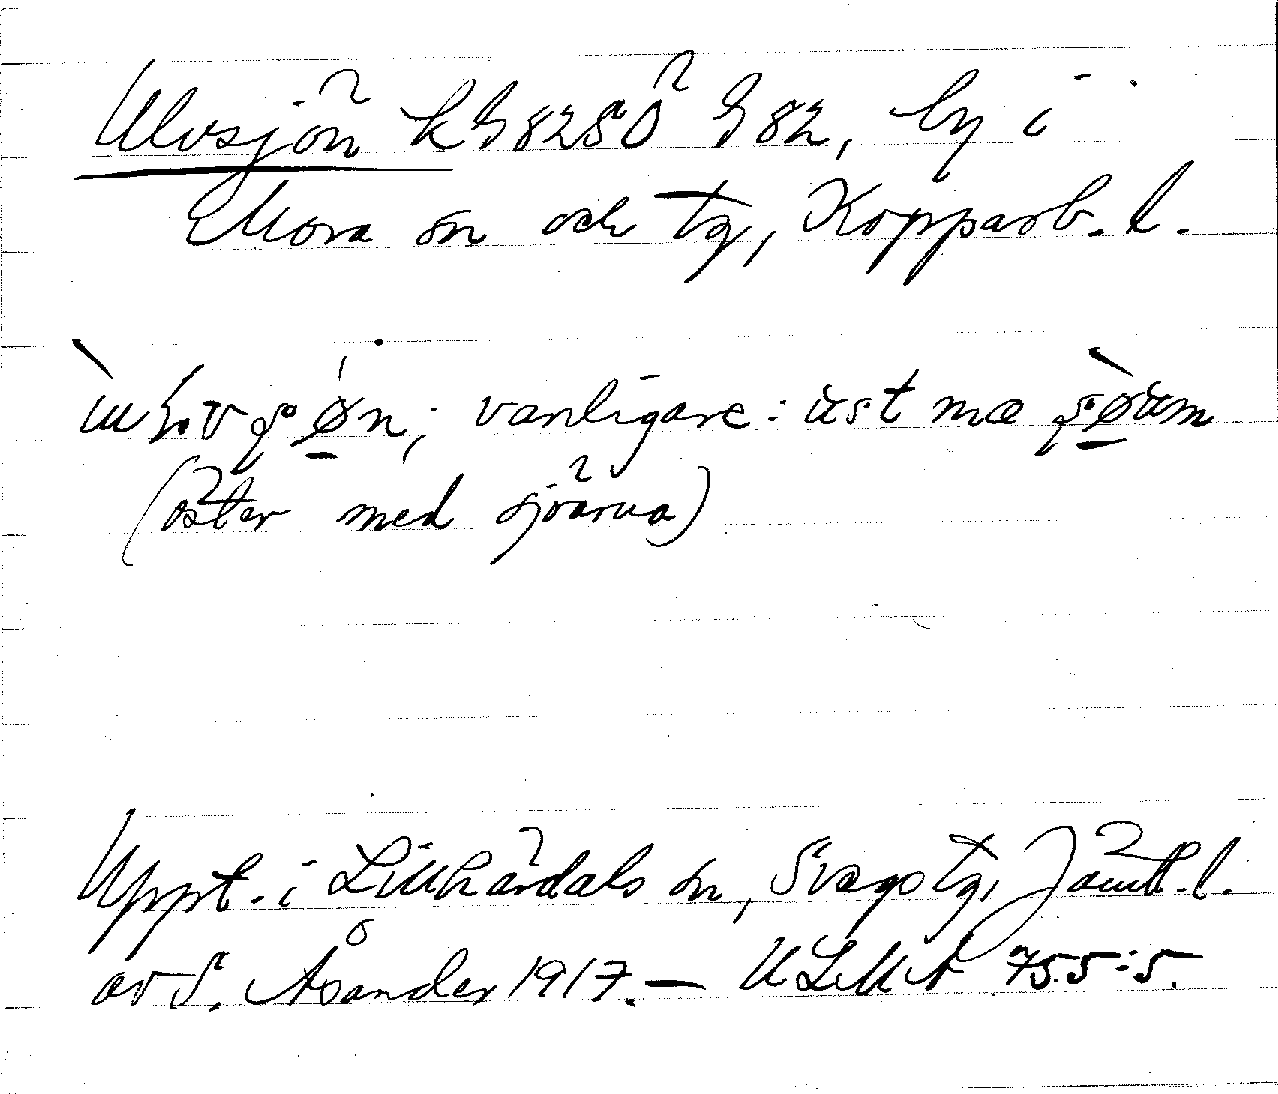 Ulvsjön k G 8280 G 82, by i
Mora sn och tg, Kopparb. l.
vanligare: üst mæ
(öster med sjöarna)
Uppt. i Lillhärdals sn, Svegs tg, Jämtl. l.
av S. Åsander 1917. — ULMA 755:5.